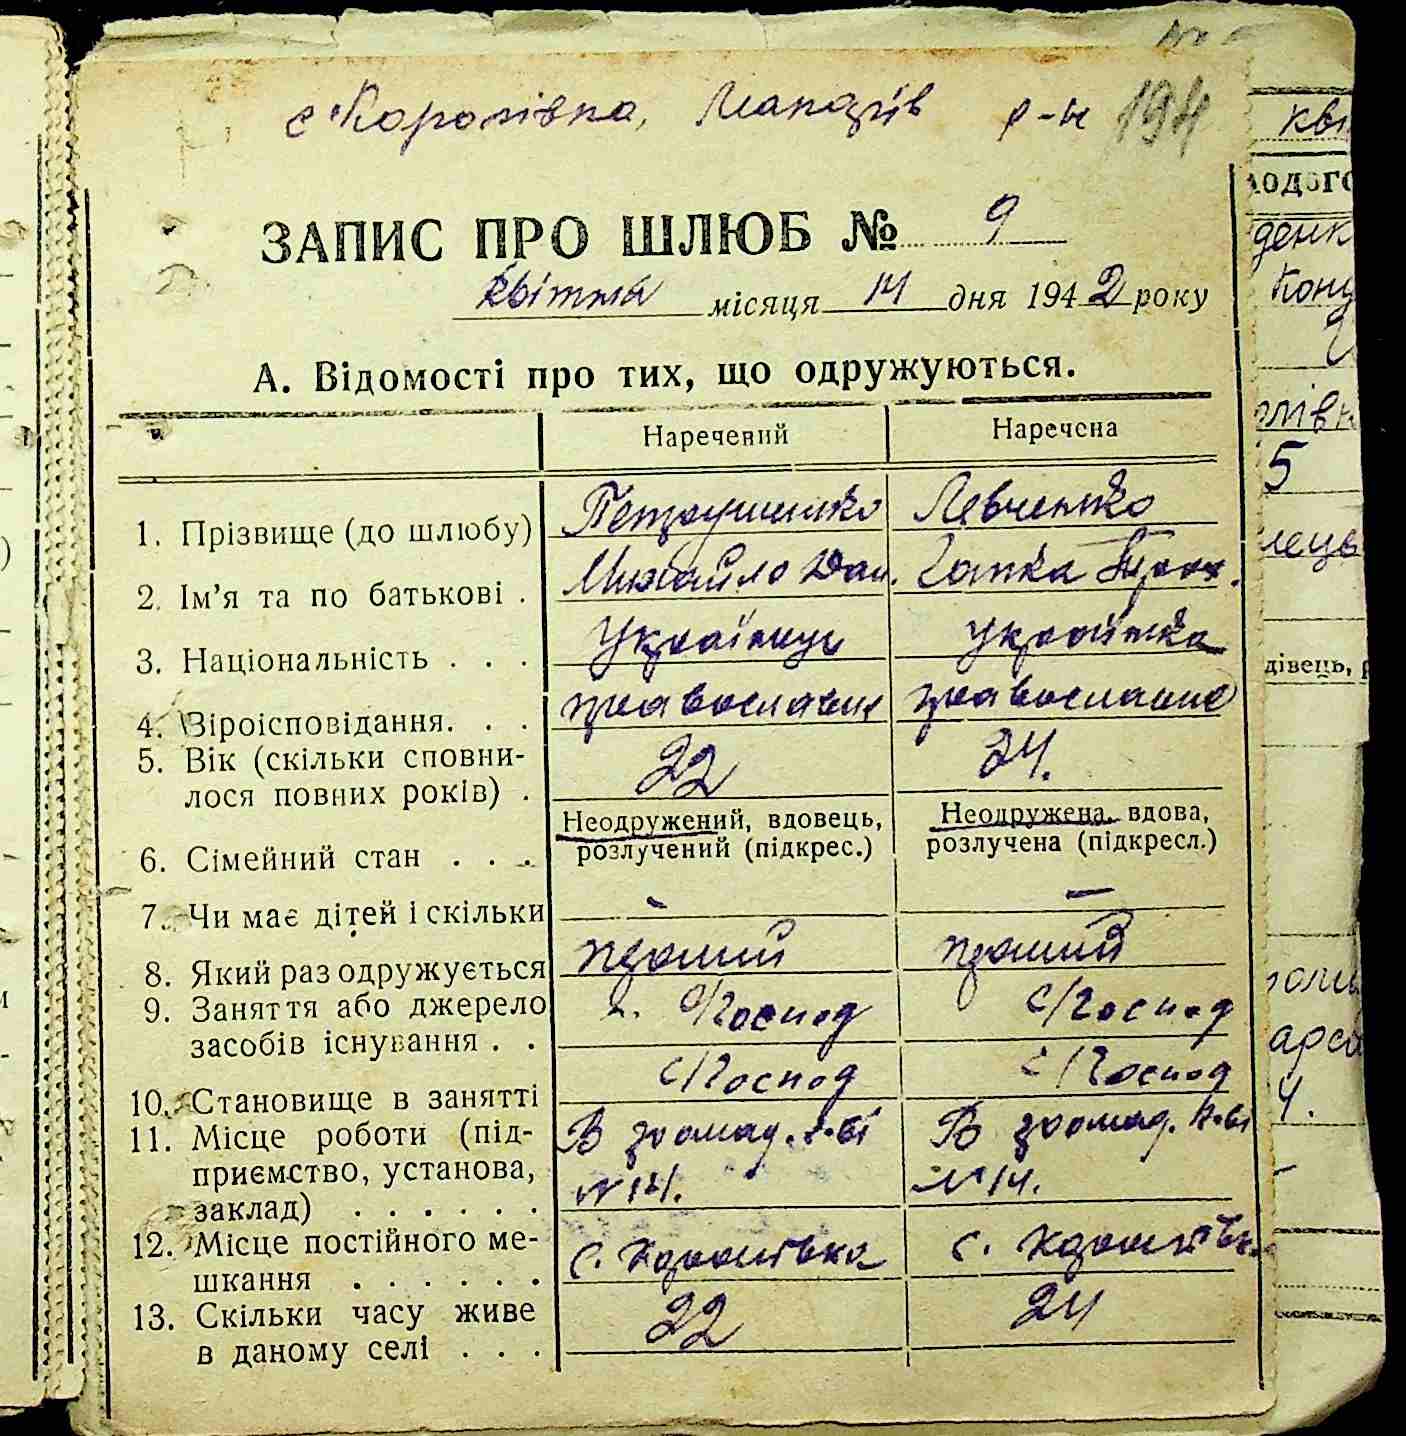 с. Королівка, Макарів р-н 194
ЗАПИС ПРО ШЛЮБ № 9
Квітня місяця 14 дня 1942 року
А. Відомості про тих, що одружуються.
Наречений Наречена
1. Прізвище (до шлюбу) Петрушенко Левченко
2. Ім'я та по батькові . Михайло Дан. Ганка Трох.
3. Національність . . . Українець українка
4. Віроісповідання. . . православне православне
5. Вік (скільки сповни-
лося повних років) . 22 24.
6. Сімейний стан . . . Неодружений, вдовець, Неодружена, вдова,
розлучений (підкрес.) розлучена (підкресл.)
7. Чи має дітей і скільки - —
8. Який раз одружується перший перший
9. Заняття або джерело
засобів існування . . с/господ с/господ
10. Становище в занятті с/господ с/господ
11. Місце роботи (під- В громад. г-ві В громад. г-ві
приємство, установа, №14. №14.
заклад) . . . . . .
12. Місце постійного ме-
шкання . . . . . . с. Королівка с. Королівка
13. Скільки часу живе 22 24
в даному селі . . .